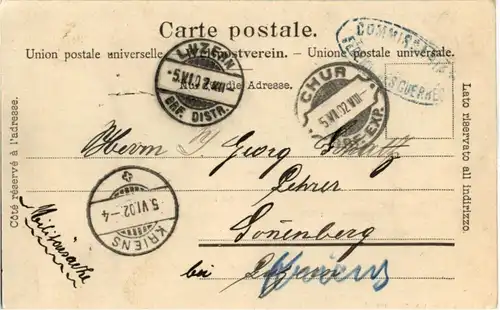 Carte postale.
Union postale universelle. Weltpostverein. Unione postale universale.
Nur für die Adresse.
Côté réservé à l'adresse.
Lato riservato all indirizzo.
LUZERN
5.VI.02.VIII
BRF. DISTR.
CHUR
5.VI.02.VIII
BRF. EXP.
COMMISSARIAT
GUERRES
Herrn Georg
Lehrer
Sonenberg
bei Luzern
Kriens
KRIENS
5.VI.02.-4
Militärsache